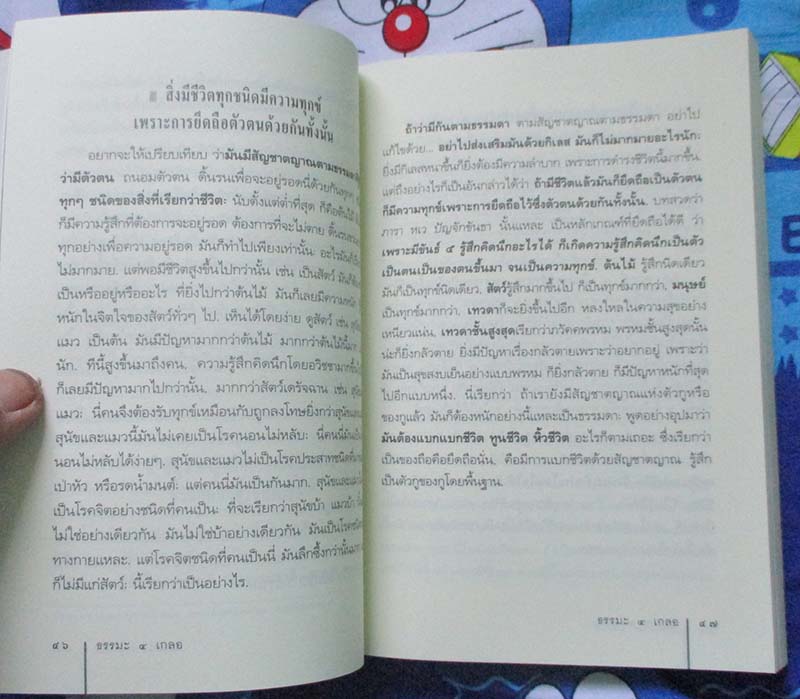 สิ่งมีชีวิตทุกชนิดมีความทุกข์
เพราะการยึดถือตัวตนด้วยกันทั้งนั้น
อยากจะให้เปรียบเทียบ ว่ามันมีสัญชาตญาณตามธรรมดา
ว่ามีตัวตน ถนอมตัวตน ดิ้นรนเพื่อจะอยู่รอดนี้ด้วยกันทุกๆ
ทุกๆ ชนิดของสิ่งที่เรียกว่าชีวิต: นับตั้งแต่ต่ำที่สุด ก็คือต้นไม้
ก็มีความรู้สึกที่ต้องการจะอยู่รอด ต้องการที่จะไม่ตาย ดิ้นรน
ทุกอย่างเพื่อความอยู่รอด มันก็ทำไปเพียงเท่านั้น: อะไรมันก็
ไม่มากมาย. แต่พอมีชีวิตสูงขึ้นไปกว่านั้น เช่น เป็นสัตว์ มันก็
เป็นหรืออยู่หรืออะไร ที่ยิ่งไปกว่าต้นไม้ มันก็เลยมีความ
หนักในจิตใจของสัตว์ทั่วๆ ไป. เห็นได้โดยง่าย ดูสัตว์ เช่น
แมว เป็นต้น มันมีปัญหามากกว่าต้นไม้ มากกว่าต้นไม้
นัก. ทีนี้สูงขึ้นมาถึงคน, ความรู้สึกคิดนึกโดยอวิชชามาก
ก็เลยมีปัญหามากไปกว่านั้น, มากกว่าสัตว์เดรัจฉาน เช่น
แมว: นี่คนจึงต้องรับทุกข์เหมือนกับถูกลงโทษยิ่งกว่าสุนัข
สุนัขและแมวนี้มันไม่เคยเป็นโรคนอนไม่หลับ: นี่คนนี้มัน
นอนไม่หลับได้ง่ายๆ. สุนัขและแมวไม่เป็นโรคประสาทชนิดที่
เป่าหัว หรือรดน้ำมนต์: แต่คนนี่มันเป็นกันมาก. สุนัขและ
เป็นโรคจิตอย่างชนิดที่คนเป็น: ที่จะเรียกว่าสุนัขบ้า แมวบ้า
ไม่ใช่อย่างเดียวกัน มันไม่ใช่บ้าอย่างเดียวกัน มันเป็นโรค
ทางกายแหละ. แต่โรคจิตชนิดที่คนเป็นนี่ มันลึกซึ้งกว่านั้น
ก็ไม่มีแก่สัตว์: นี้เรียกว่าเป็นอย่างไร.
๔๖ ธรรมะ ๔ เกลอ
ถ้าว่ามีกันตามธรรมดา ตามสัญชาตญาณตามธรรมดา อย่าไป
แก้ไขด้วย... อย่าไปส่งเสริมมันด้วยกิเลส มันก็ไม่มากมายอะไรนัก:
ยิ่งมีกิเลสหนาขึ้นก็ยิ่งต้องมีความลำบาก เพราะการดำรงชีวิตนี้มากขึ้น.
แต่ถึงอย่างไรก็เป็นอันกล่าวได้ว่า ถ้ามีชีวิตแล้วมันก็ยึดถือเป็นตัวตน
ก็มีความทุกข์เพราะการยึดถือไว้ซึ่งตัวตนด้วยกันทั้งนั้น. บทสวดว่า
ภารา หเว ปัญจักขันธา นั้นแหละ เป็นหลักเกณฑ์ที่ยึดถือได้ดี ว่า
เพราะมีขันธ์ ๕ รู้สึกคิดนึกอะไรได้ ก็เกิดความรู้สึกคิดนึกเป็นตัว
เป็นตนเป็นของตนขึ้นมา จนเป็นความทุกข์. ต้นไม้ รู้สึกนิดเดียว
มันก็เป็นทุกข์นิดเดียว, สัตว์รู้สึกมากขึ้นไป ก็เป็นทุกข์มากกว่า, มนุษย์
เป็นทุกข์มากกว่า, เทวดาก็จะยิ่งขึ้นไปอีก หลงใหลในความสุขอย่าง
เหนียวแน่น, เทวดาชั้นสูงสุดเรียกว่าภวัคคพรหม พรหมชั้นสูงสุดนั้น
น่ะก็ยิ่งกลัวตาย ยิ่งมีปัญหาเรื่องกลัวตายเพราะว่าอยากอยู่ เพราะว่า
มันเป็นสุขสงบเย็นอย่างแบบพรหม ก็ยิ่งกลัวตาย ก็มีปัญหาหนักที่สุด
ไปอีกแบบหนึ่ง. นี่เรียกว่า ถ้าเรายังมีสัญชาตญาณแห่งตัวกูหรือ
ของกูแล้ว มันก็ต้องหนักอย่างนี้แหละเป็นธรรมดา: พูดอย่างอุปมาว่า
มันต้องแบกแบกชีวิต ทูนชีวิต หิ้วชีวิต อะไรก็ตามเถอะ ซึ่งเรียกว่า
เป็นของถือคือยึดถือนั่น, คือมีการแบกชีวิตด้วยสัญชาตญาณ รู้สึก
เป็นตัวกูของกูโดยพื้นฐาน.
ธรรมะ ๔ เกลอ ๔๗